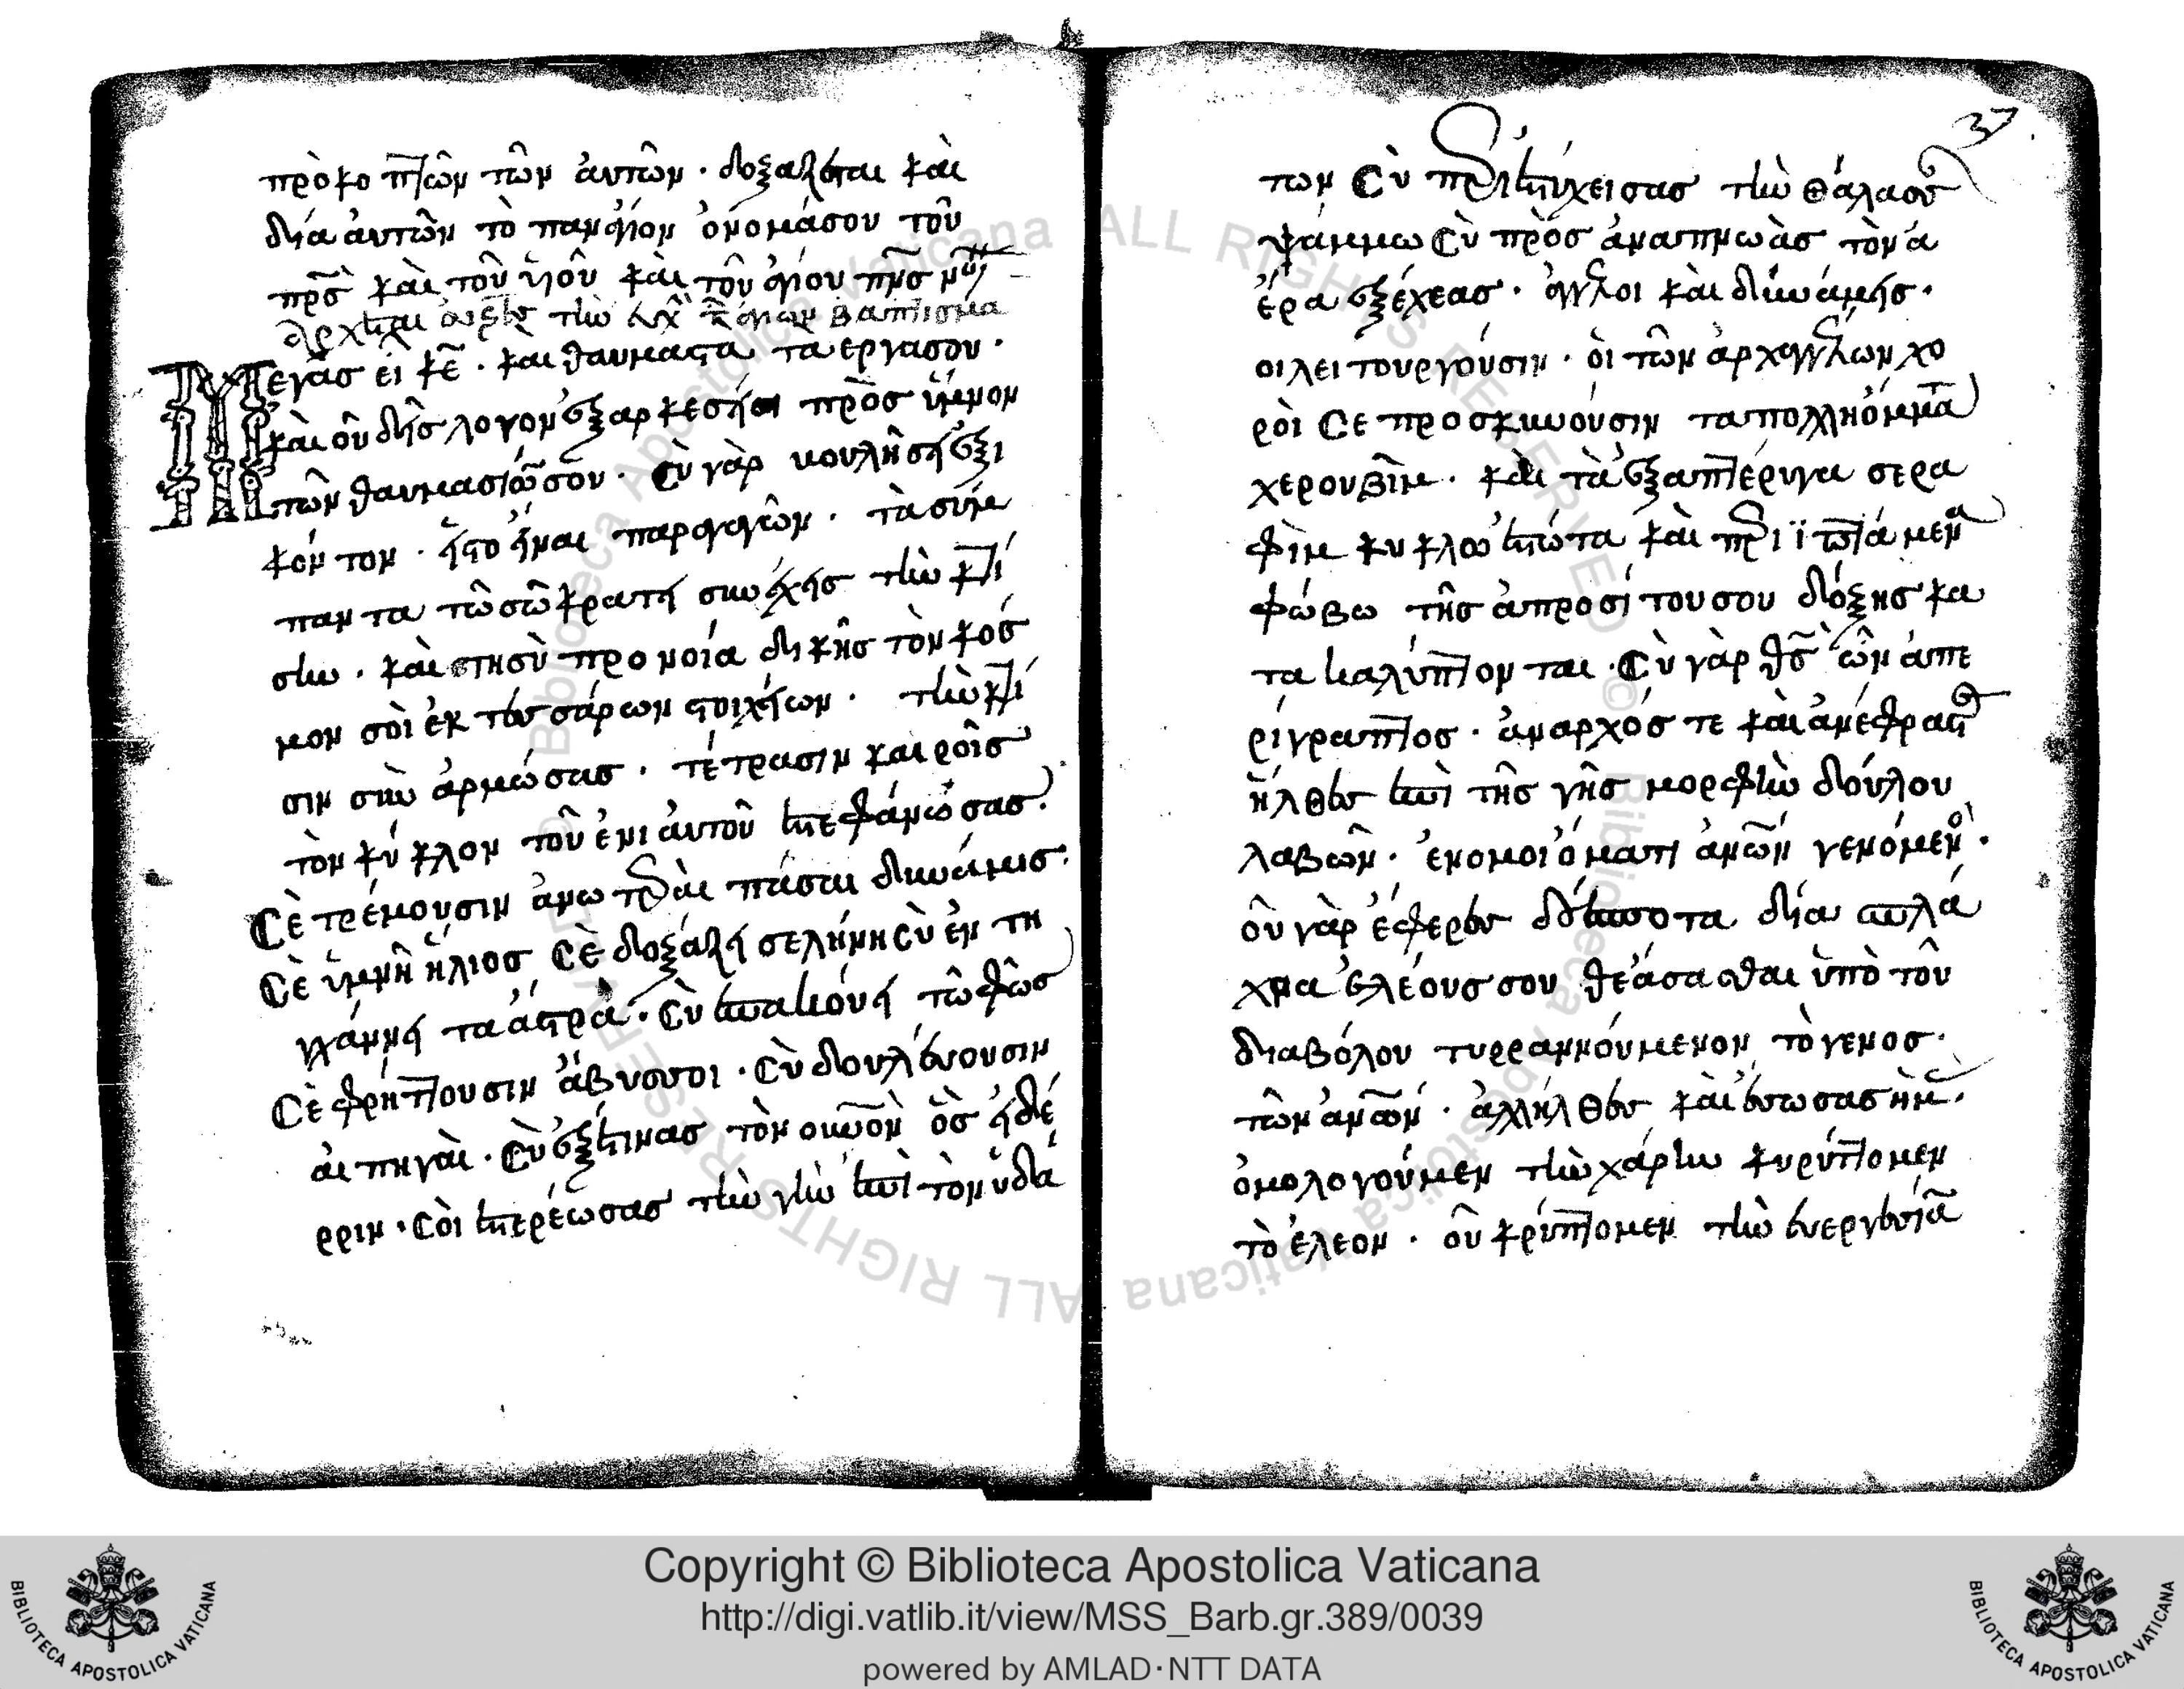 πρὸκοπτῶν τῶν ἀυτῶν · δοξάζεται καὶ
δία ἀυτῶν τὸ παναγίον ὀνομάσου τοῦ
πρσ καὶ τοῦ ὑιοῦ καὶ τοῦ αγίου πνσ νῦν
ἄρχεται εὐξὰς τὴν εὐχ τῶν ἁγίων βαπτισμα
Μεγᾶσ εἰ κε · καὶ θαυμαστα τα εργασου ·
καὶ οὐδὴς λογον ἐξαρκεσήσι πρὸσ ὕμνον
τῶν θαυμασίῶν σου · Cὺ γὰρ κουλήσή ἐξι
κόν τον · ἡς το ἥναι παραγαγῶν · τὰ σύμ
παντα τῶ σῶ κρατή συνέχης τὴν κτί
σιν · καὶ στησὺ προνοία διικῆς τὸν κόσ
μον σὸι ἐκ τέσσάρων στοιχήων · τὴν κτί
σιν συν ἁρμώσας · τέτρασιν καιροῖσ
τὸν κύκλον τοῦ ἐνιἀυτοῦ ἐστεφάνωσας ·
Cὲ τρέμουσιν ἀνωτεραι πάσαι δυνάμισ ·
Cὲ ὑμνῆ ἥλιοσ Cὲ δοξάζη σελήνη Cὺ ἐν τη
χάννή τα ἀστρα · Cὺ ἐπακούνή τῶ φῶσ
Cὲ φρήττουσιν ἄβυσσοι · Cὺ δουλέυουσιν
ἁι πηγαὶ · Cὺ ἐξέτινας τὸν ουνὸν ὁσ ἡδέ
ρριν · Cὸι ἐστερέωσας τὴν γὴν ἐπὶ τὸν ὑδά
37
των Cὺ περιετύχεισας τὴν θάλασσ
ψάμμω Cὺ πρὸσ ἀναπνωὰς τὸν ἀ
έρα ἐξέχεας · ἄγγελοι καὶ δυνάμής ·
οι λειτουργούσιν · ὁι τῶν ἀρχαγγέλων χο
ρὸι Cε προσκυνούσιν τα πολλὴόμματα
χερουβὶμ · καὶ τὰ ἐξαπτέρυγα σερα
φὶμ κυκλω ἑστώτα καὶ περιϊπτάμενα
φώβω τῆς ἀπροσίτου σου δόξης κα
τα καλύπτονται · Cὺ γὰρ θσ ὢν ἀπε
ρίγραπτοσ · ἀναρχόσ τε καὶ ἀνέφραστ
ἠλθες ἐπὶ τῆς γῆς μορφὴν δούλου
λαβών · ἐν ομοιόματι ἀνῶν γενόμεν ·
ὀυ γὰρ ἔφερες δέσποτα δία σπλά
χνα ἐλέους σου θεάσασθαι ὑπὸ τοῦ
διαβόλου τυρραννούμενον τὸ γενοσ ·
τῶν ἀνῶν · ἀλλἠλθες καὶ ἔσωσας ἡμ ·
ὁμολογούμεν τὴν χάριν κυρύττομεν
τὸ ἐλεον · ὀυ κρύπτομεν τὴν ἐυεργεσία
Copyright © Biblioteca Apostolica Vaticana
http://digi.vatlib.it/view/MSS_Barb.gr.389/0039
powered by AMLAD·NTT DATA
BIBLIOTECA APOSTOLICA VATICANA
BIBLIOTECA APOSTOLICA VATICANA